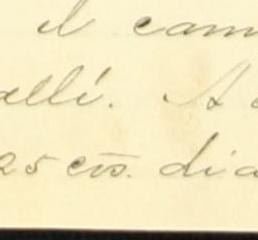 el cam
allí. A
25 cvs. dia